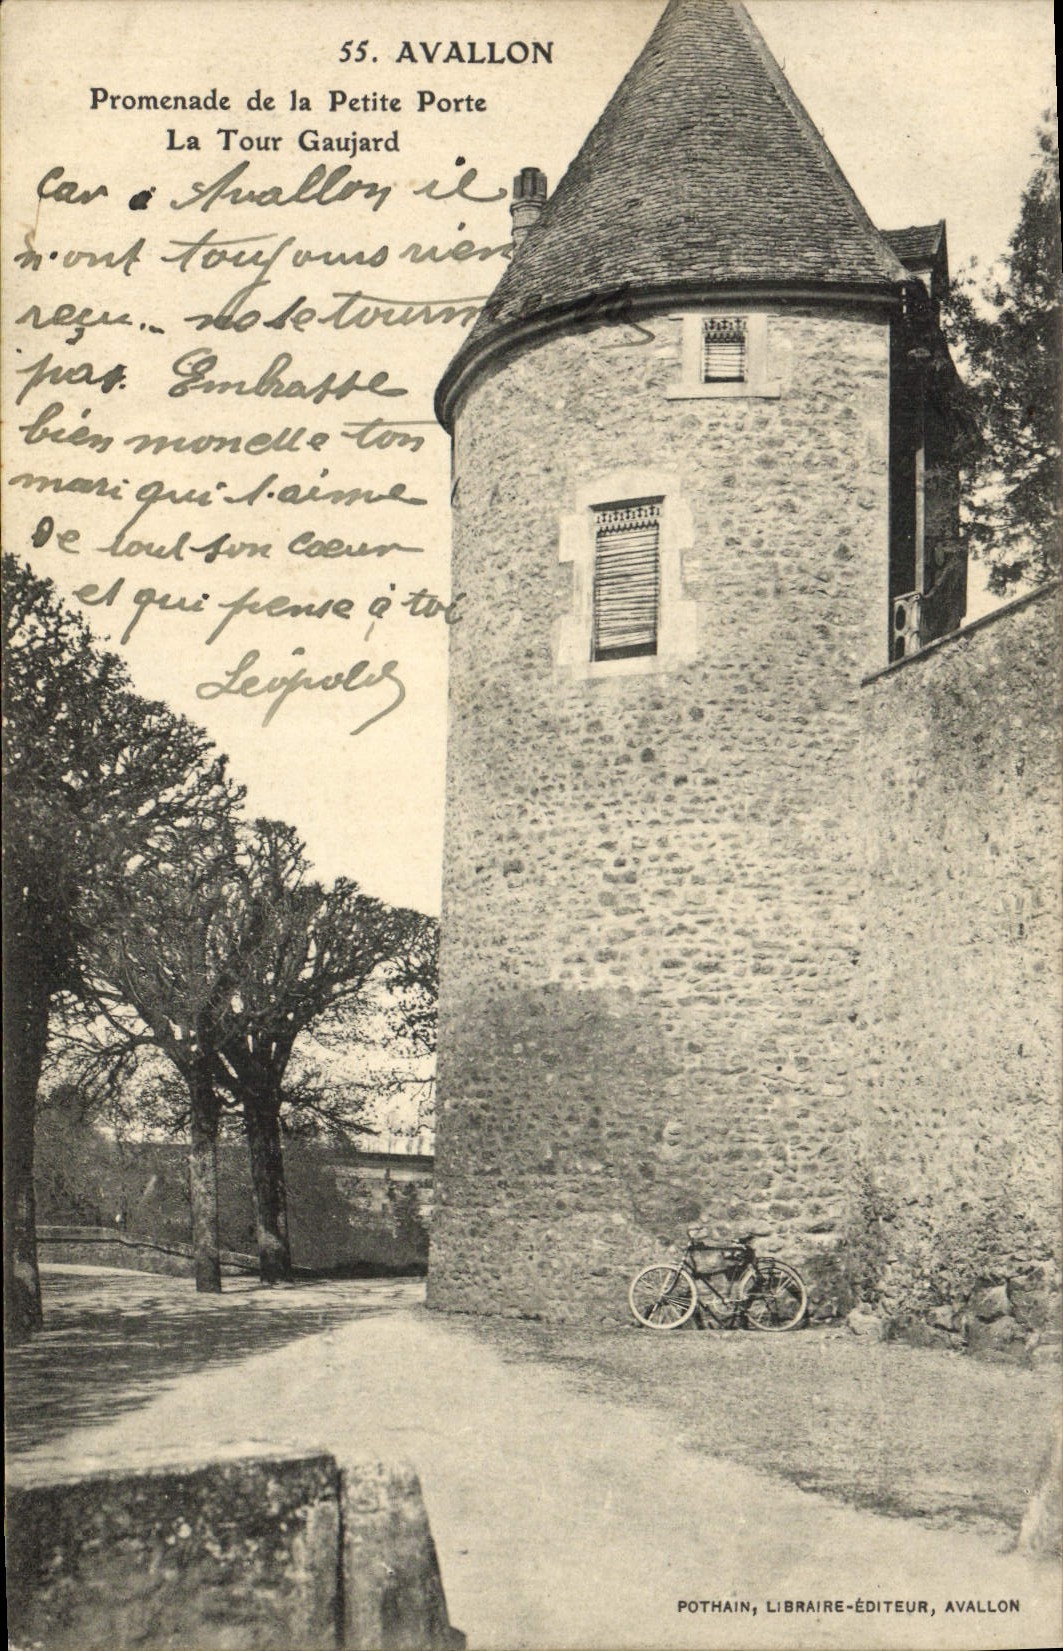 55. AVALLON
Promenade de la Petite Porte
La Tour Gaujard
car à Avallon il
n'ont toujours rien
reçu..
pas. Embrasse
bien ton
mari qui t'aime
De tout son cœur
et qui pense à toi
Léopold
POTHAIN, LIBRAIRE-ÉDITEUR, AVALLON